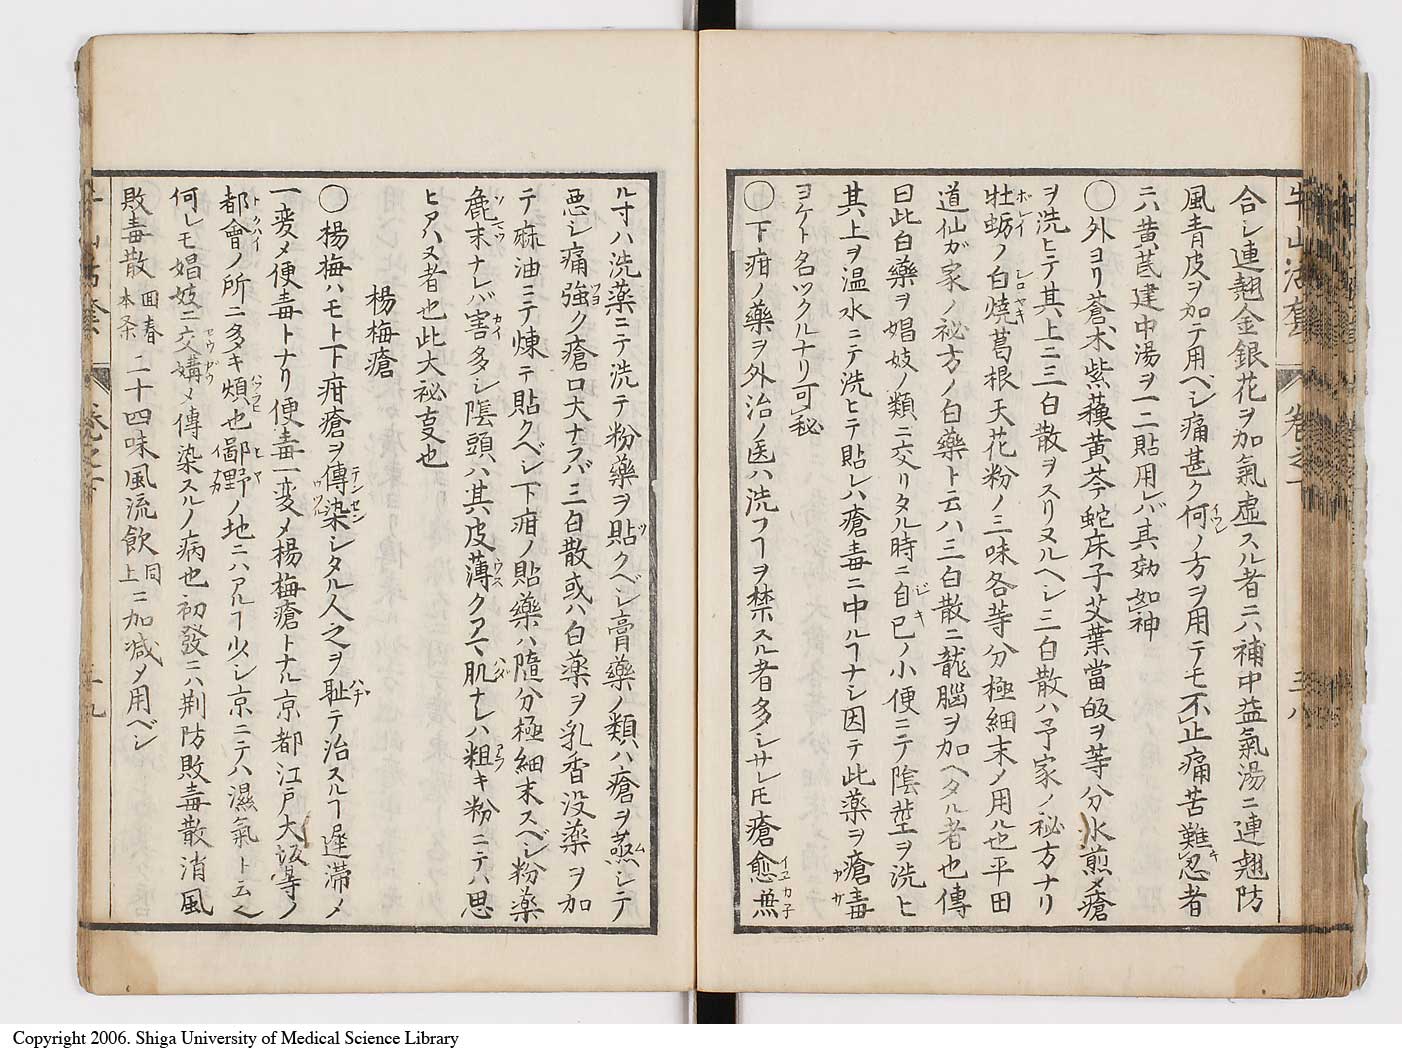 合シ連翹金銀花ヲ加氣虚スル者ニハ補中益氣湯ニ連翹防
風青皮ヲ加テ用ベシ痛甚ク何ノ方ヲ用テモ不止痛苦難忍者
ニハ黄芪建中湯ヲ一二貼用レバ其効如神
○外ヨリ蒼朮紫蘓黄芩蛇床子艾葉當皈ヲ等分水煎〆瘡
ヲ洗ヒテ其上ニ三白散ヲスリヌルヘシ三白散ハ予家ノ秘方ナリ
牡蛎ノ白燒葛根天花粉ノ三味各等分極細末ノ用ル也平田
道仙ガ家ノ秘方ノ白藥ト云ハ三白散ニ龍腦ヲ加ヘタル者也傳
曰此白藥ヲ娼妓ノ類ニ交リタル時ニ自已ノ小便ニテ陰莖ヲ洗ヒ
其上ヲ温水ニテ洗ヒテ貼レハ瘡毒ニ中ルヿナシ因テ此藥ヲ瘡毒
ヨケト名ツクルナリ可秘
○下疳ノ藥ヲ外治ノ医ハ洗フヿヲ禁スル者多シサレ𪜈瘡愈無
ル寸ハ洗藥ニテ洗テ粉藥ヲ貼クベシ膏藥ノ類ハ瘡ヲ蒸シテ
悪シ痛強ク瘡口大ナラバ三白散或ハ白薬ヲ乳香没藥ヲ加
テ麻油ニテ煉テ貼クベシ下疳ノ貼藥ハ隨分極細末スベシ粉藥
麁末ナレバ害多シ陰頭ハ其皮薄クアマ肌ナレハ粗キ粉ニテハ思
ヒアハヌ者也此大祕叓也
楊梅瘡
○楊梅ハモト下疳瘡ヲ傳染シタル人之ヲ耻テ治スルヿ遲滞〆
一変〆便毒トナリ便毒一変〆楊梅瘡トナル京都江戸大坂等ノ
都會ノ所ニ多キ煩也鄙野ノ地ニハアルヿ少シ京ニテハ濕氣ト云
何レモ娼妓ニ交媾〆傳染スルノ病也初發ニハ荆防敗毒散消風
敗毒散回春本条二十四味風流飲同上ニ加减〆用ベシ